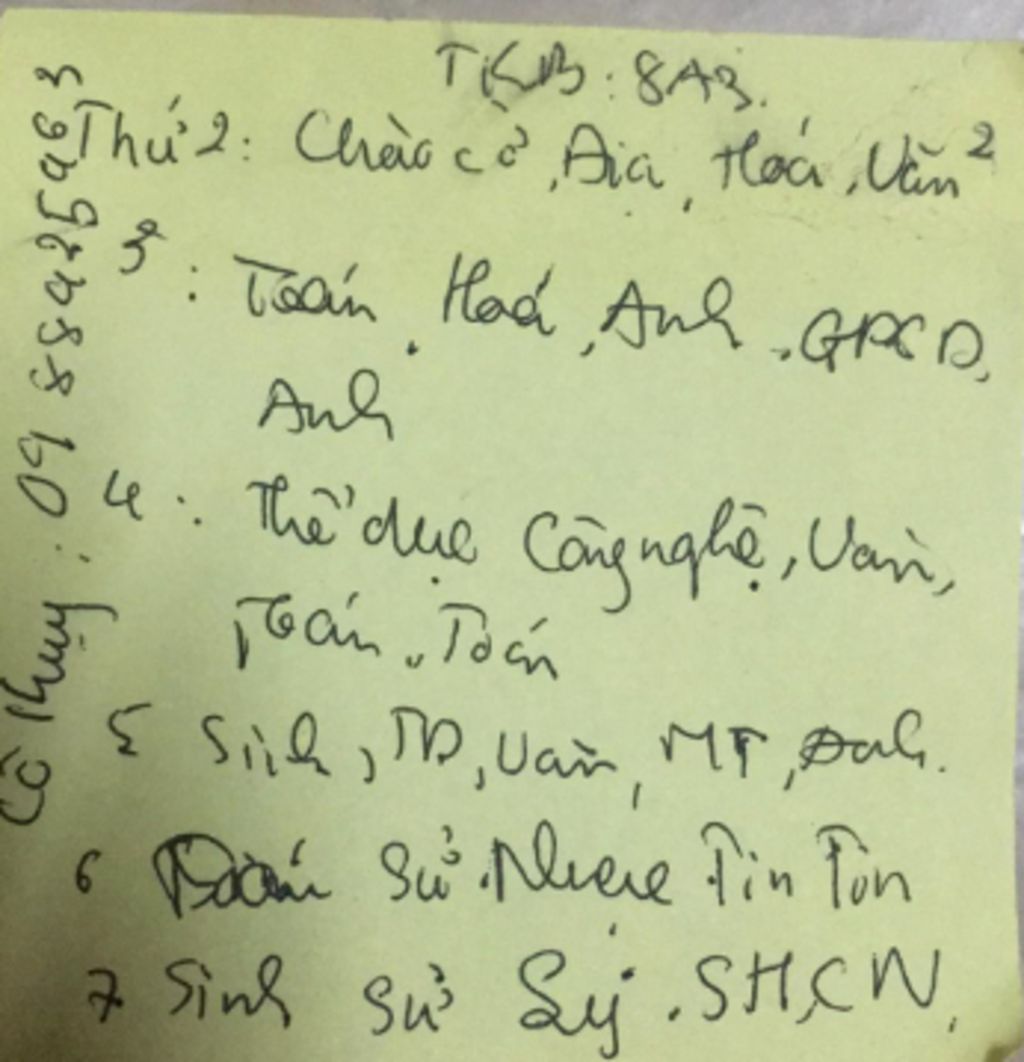 TKB: 8A3.
Thứ 2: Chào cờ, Địa, Hoá, Văn 2
3: Toán, Hoá, Anh, GDCD,
Anh
4: Thể dục Công nghệ, Văn,
Toán, Toán
5 Sinh, TD, Văn, MT, Anh.
6 Toán Sử. Nhạc Tin Tin
7 Sinh Sử Lý. SH, CN,
Cô Thuỵ: 09 88925963